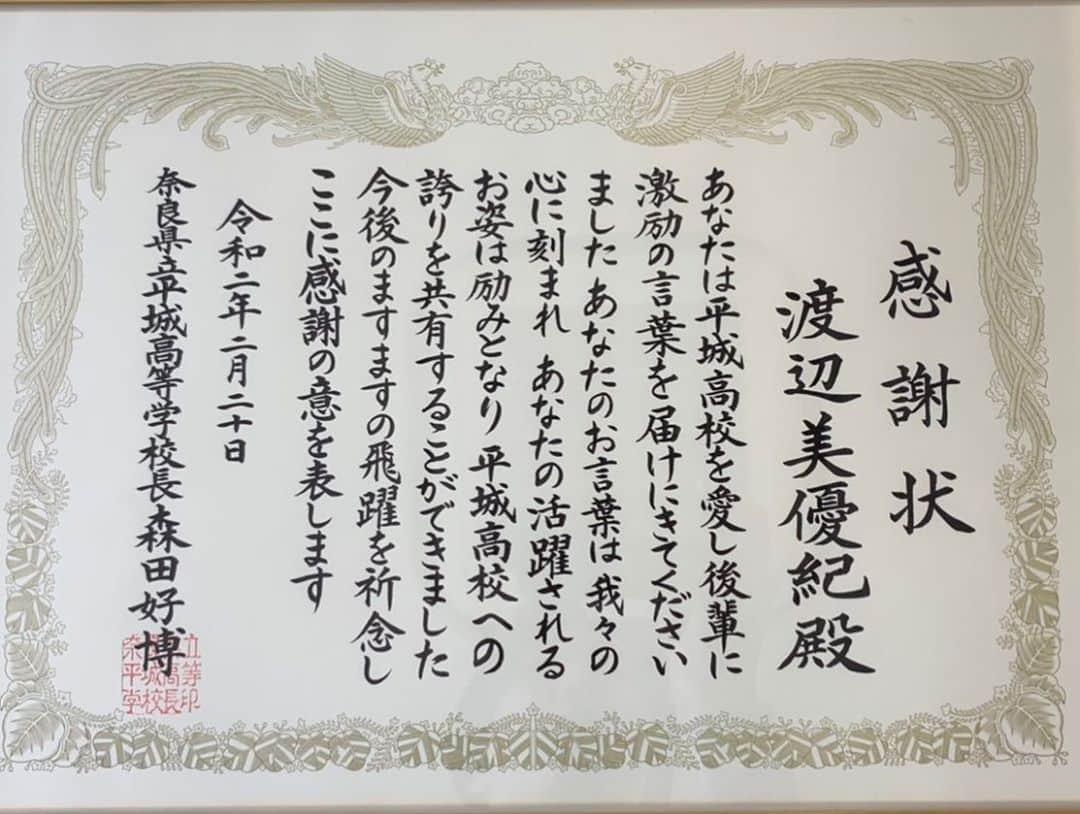 感謝状
渡辺美優紀殿
あなたは平城高校を愛し後輩に
激励の言葉を届けにきてください
ました あなたのお言葉は我々の
心に刻まれ あなたの活躍される
お姿は励みとなり 平城高校への
誇りを共有することができました
今後のますますの飛躍を祈念し
ここに感謝の意を表します
令和二年二月二十日
奈良県立平城高等学校長 森田好博